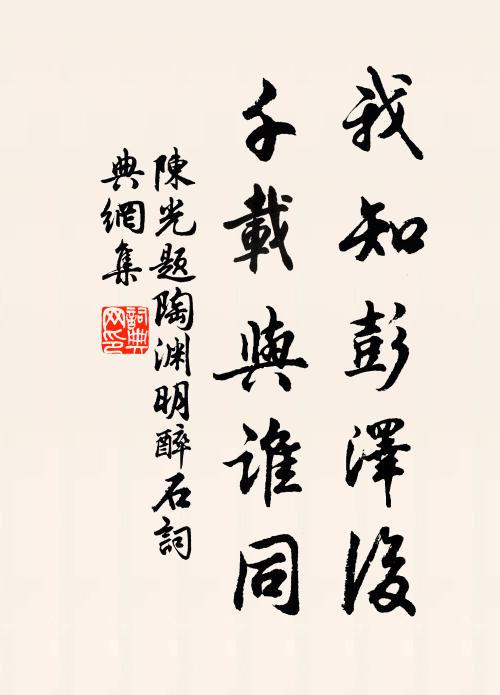 我知彭澤後
千載與誰同
陳光题陶渊明醉石詞
典網集
詞典
网印